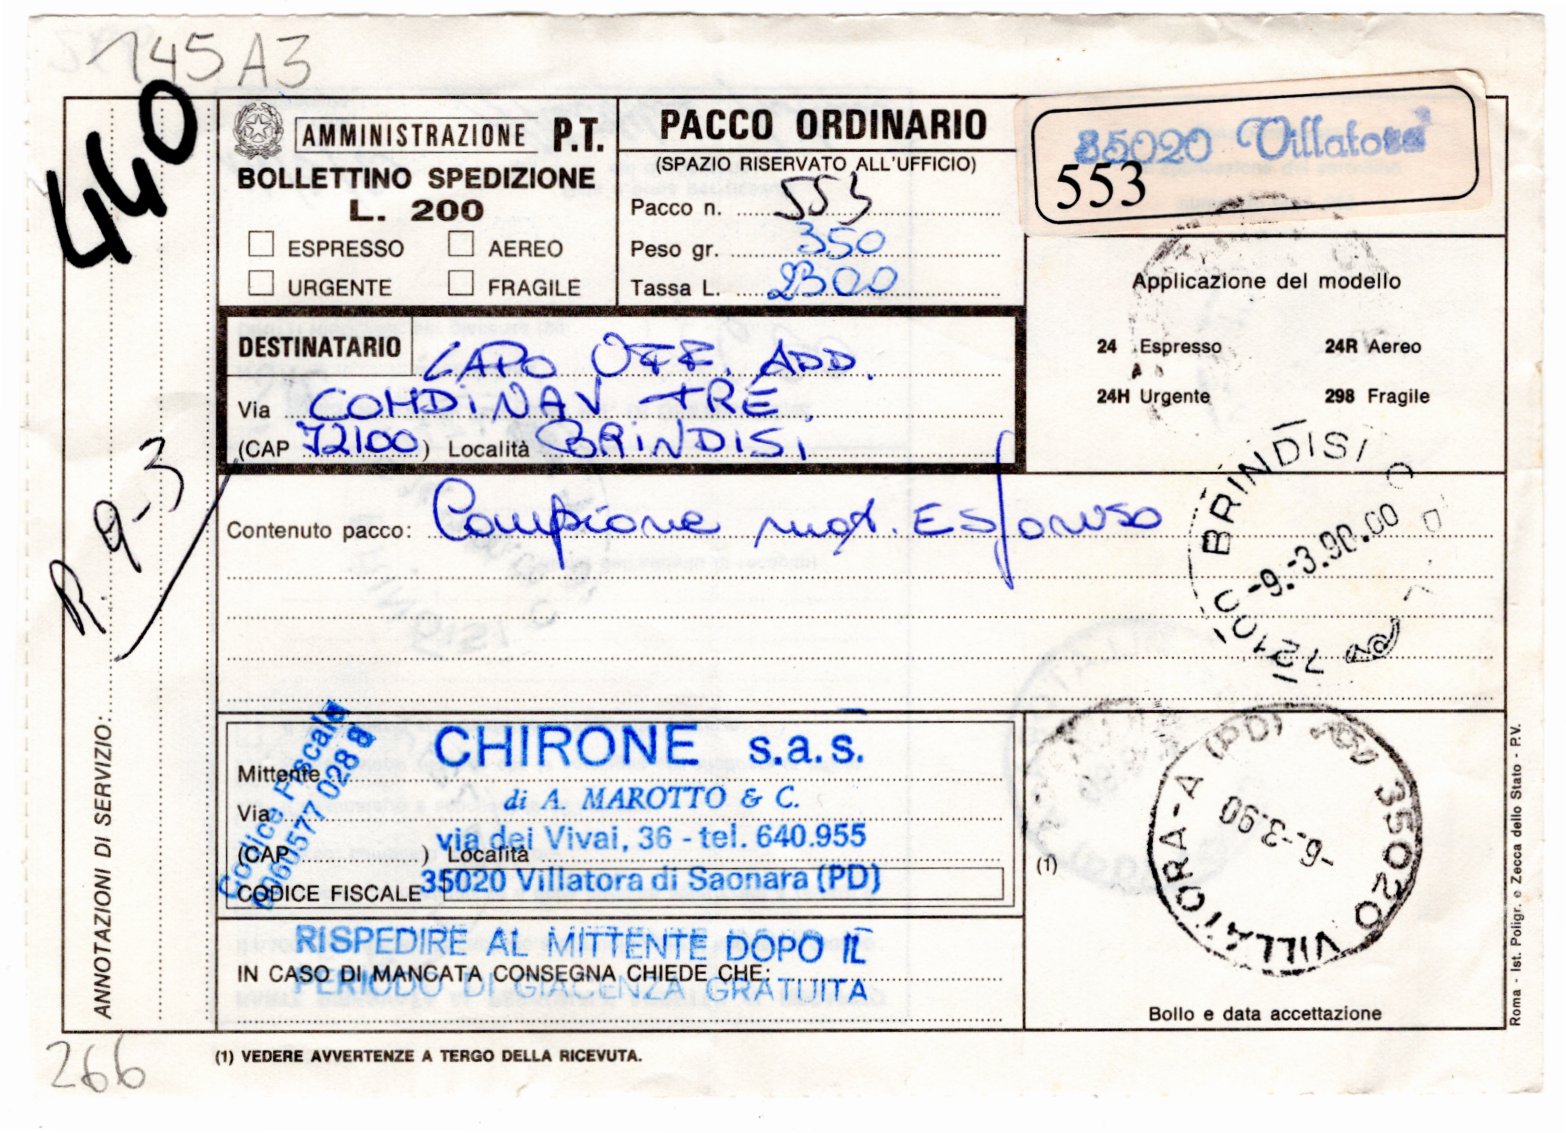 145A3
440
AMMINISTRAZIONE P.T.
BOLLETTINO SPEDIZIONE
L. 200
ESPRESSO AEREO
URGENTE FRAGILE
PACCO ORDINARIO
(SPAZIO RISERVATO ALL'UFFICIO)
Pacco n. 553
Peso gr. 350
Tassa L. 2300
35020 Villatora
553
Applicazione del modello
24 Espresso 24R Aereo
24H Urgente 298 Fragile
DESTINATARIO CAPO UFF. ADD.
Via COMDINAV TRE
(CAP 72100) Località BRINDISI
R. 9-3
Contenuto pacco: Campione mat. Esforuso
72100 BRINDISI
-9.-3.90.00
ANNOTAZIONI DI SERVIZIO:
Codice Fiscale
CHIRONE s.a.s.
Mittente
di A. MAROTTO & C.
Via
via dei Vivai, 36 - tel. 640.955
(CAP ) Località
35020 Villatora di Saonara (PD)
CODICE FISCALE
RISPEDIRE AL MITTENTE DOPO IL
IN CASO DI MANCATA CONSEGNA CHIEDE CHE:
PERIODO DI GIACENZA GRATUITA
(1)
35020 VILLATORA-A (PD)
-6.-3.90
Bollo e data accettazione
Roma - Ist. Poligr. e Zecca dello Stato - P.V.
266
(1) VEDERE AVVERTENZE A TERGO DELLA RICEVUTA.